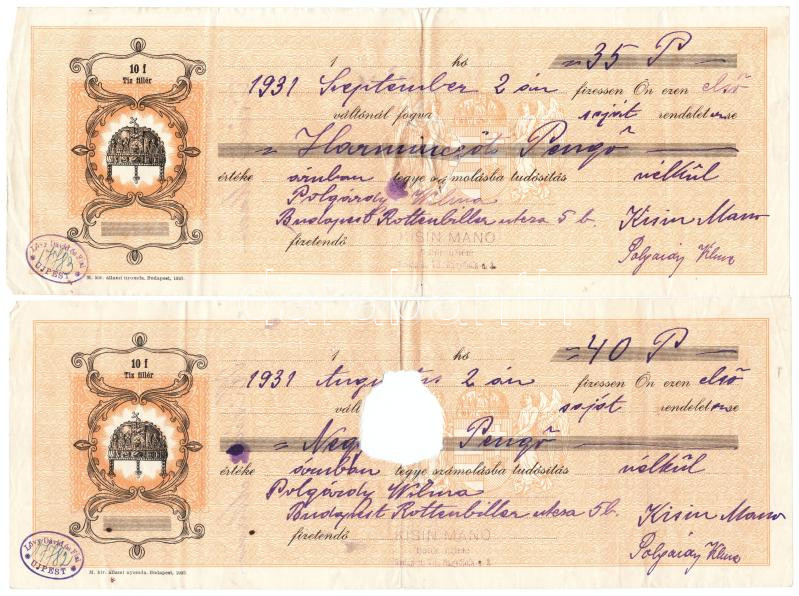 10 f
Tiz fillér
1 hó = 35 P
1931 Szeptember 2 án fizessen Ön ezen első
váltónál fogva saját rendeletemre
= Harmincöt Pengő
értéke áruban tegye számolásba tudósítás nélkül
Polgárdy Wilma
Budapest Rottenbiller utcza 5 b. Kisin Mano
fizetendő KISIN MANO
Polgárdy Vilma
UJPEST
M. kir. állami nyomda. Budapest, 1927.
10 f
Tiz fillér
1 hó = 40 P
1931 Augusztus 2 án fizessen Ön ezen első
vált saját rendeletemre
= Neg Pengő
értéke áruban tegye számolásba tudósítás nélkül
Polgárdy Wilma
Budapest Rottenbiller utcza 5 b. Kisin Mano
fizetendő KISIN MANO
Polgárdy Vilma
UJPEST
M. kir. állami nyomda. Budapest,